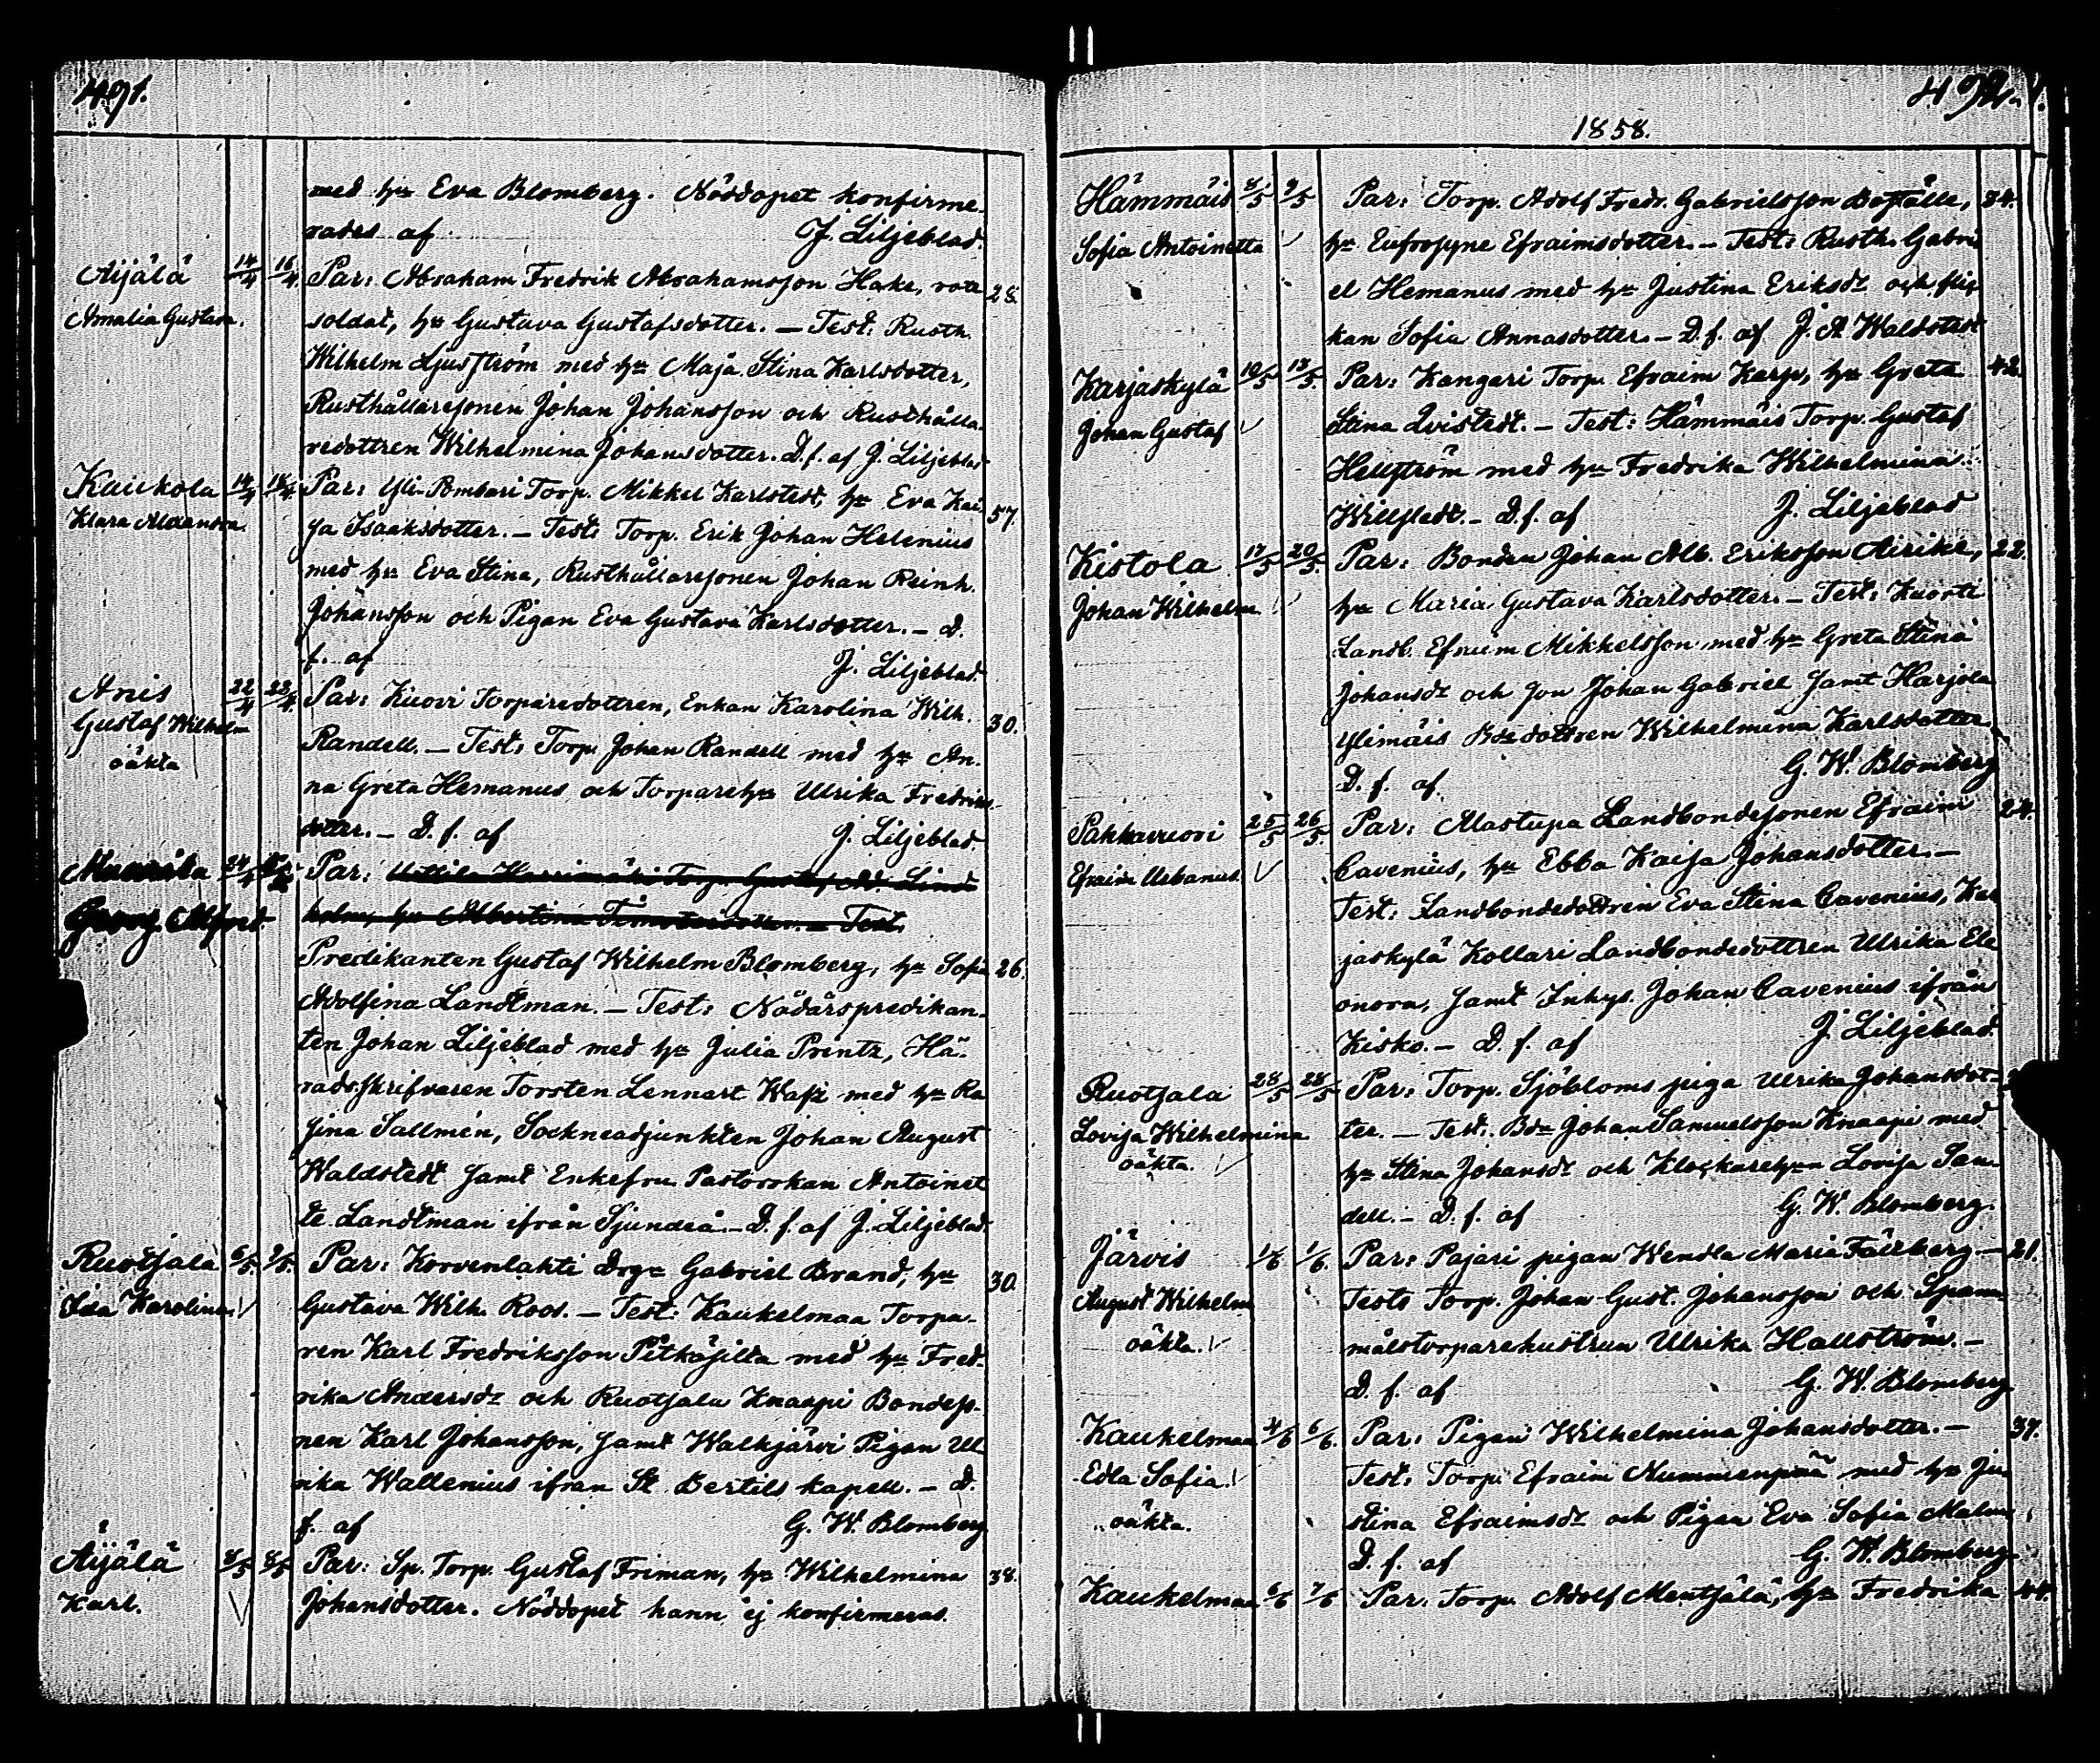 491.
med hu Eva Blomberg. Nöddopet konfirme-
rades af J. Liljeblad.
Aijälä 14/4 16/4. Par: Abraham Fredrik Abrahamsson Hake, rote 28.
Amalia Gustava. soldat, hu Gustava Gustafsdotter. — Test: Rusth.
Wilhelm Ljusström med hu Maja Stina Karlsdotter,
Rusthållaresonen Johan Johansson och Rusthålla-
redottren Wilhelmina Johansdotter. D. f. af J. Liljeblad
Kaukola 14/4 18/4. Par: Yli-Pombari Torp. Mikkel Karlstedt, hu Eva Kai- 57.
Klara Alexandra. sa Isaaksdotter. — Test: Torp. Erik Johan Helenius
med hu Eva Stina, Rusthållaresonen Johan Reinh.
Johansson och Pigan Eva Gustava Karlsdotter. — D.
f. af J. Liljeblad.
Anis 22/4 23/4. Par: Kuovi Torparedottren, Enkan Karolina Wilh. 30.
Gustaf Wilhelm Randell. — Test: Torp. Johan Randell med hu An-
oäkta na Greta Hemanus och Torparehu Ulrika Fredriks-
dotter. — D. f. af J. Liljeblad.
Muurila 24/4 Par:
Georg Alfred. hu Albertina — Test.
Predikanten Gustaf Wilhelm Blomberg, hu Sofia 26.
Adolfina Landtman. — Test: Nådårspredikan-
ten Johan Liljeblad med hu Julia Printz, Hä-
radsskrifvaren Torsten Lennart med hu Ra
Sallmén, Sockneadjunkten Johan August
Waldstedt samt Enkefru Pastorskan Antoinet
te Landtman ifrån Sjundeå. — D. f. af J. Liljeblad.
Ruotsala 6/5. 9/5. Par: Korvenlahti Drg Gabriel Brand, hu 30.
Ida Karolina. Gustava Wilh. Roos. — Test: Kaukelmaa Torpa-
ren Karl Fredriksson Pitkäsilta med hu Fred-
rika Andersdr och Ruotsala Knaapi Bondeso-
nen Karl Johansson, samt Walkjärvi Pigan Ul
rika Wallenius ifrån St Bertils kapell. — D.
f. af G. W. Blomberg
Aijälä 8/5 8/5 Par: Sp. Torp. Gustaf Friman, hu Wilhelmina 38.
Karl. Johansdotter. Nöddopet hann ej konfirmeras.
492.
1858.
Hämmäis 8/5 9/5 Par: Torp. Adolf Fredr. Gabrielsson Boställe, 34.
Sofia Antoinetta hu Eufrosyne Efraimsdotter. — Test: Rusth. Gabri
el Hemanus med hu Justina Eriksdr och flic
kan Sofia Annasdotter. — D. f. af J. A Waldstedt
Karjaskylä 10/5 13/5. Par: Kangari Torp. Efraim Karp, hu Greta 42.
Johan Gustaf Stina Qvistedt. — Test: Hämmäis Torp. Gustaf
Hellström med hu Fredrika Wilhelmina
— D. f. af J. Liljeblad
Kistola 17/5 20/5. Par: Bonden Johan Alb. Eriksson Airike, 22.
Johan Wilhelm hu Maria Gustava Karlsdotter. — Test: Kuorti
Landb. Efraim Mikkelsson med hu Greta Stina
Johansdr och son Johan Gabriel samt Harjola
Ylimäis Bdedottren Wilhelmina Karlsdotter.
D. f. af. G. W. Blomberg
Pakkavuori 25/5 26/5. Par: Mastupa Landbondesonen Efraim 24.
Efraim Urbanus. Cavenius, hu Ebba Kaisa Johansdotter. —
Test: Landbondedottren Eva Stina Cavenius, Kar
jaskylä Kollari Landbondedottren Ulrika Ele
onora, samt Inhys. Johan Cavenius ifrån
Kisko. — D. f. af J. Liljeblad.
Ruotsala 28/5 28/5 Par: Torp. Sjöbloms piga Ulrika Johansdot-
Lovisa Wilhelmina ter. — Test: Bde Johan Samuelsson Knaapi med
oäkta. hu Stina Johansdr och Klockarehun Lovisa San-
dell. — D. f. af G. W. Blomberg.
Järvis 1/6 1/6. Par: Pajari pigan Wendla Maria — 21.
August Wilhelm Test: Torp. Johan Gust. Johansson och Spann-
oäkta. målstorparehustrun Ulrika Hallström. —
D. f. af G. W. Blomberg
Kaukelmaa 4/6 6/6. Par: Pigan Wilhelmina Johansdotter. — 37.
Edla Sofia. Test: Torp. Efraim Nummenpää med hu Ju-
oäkta. stina Efraimsdr och Pigan Eva Sofia Malm
D. f. af G. W. Blomberg.
Kaukelmaa 6/6 7/6 Par: Torp. Adolf Mentsälä, hu Fredrika 44.